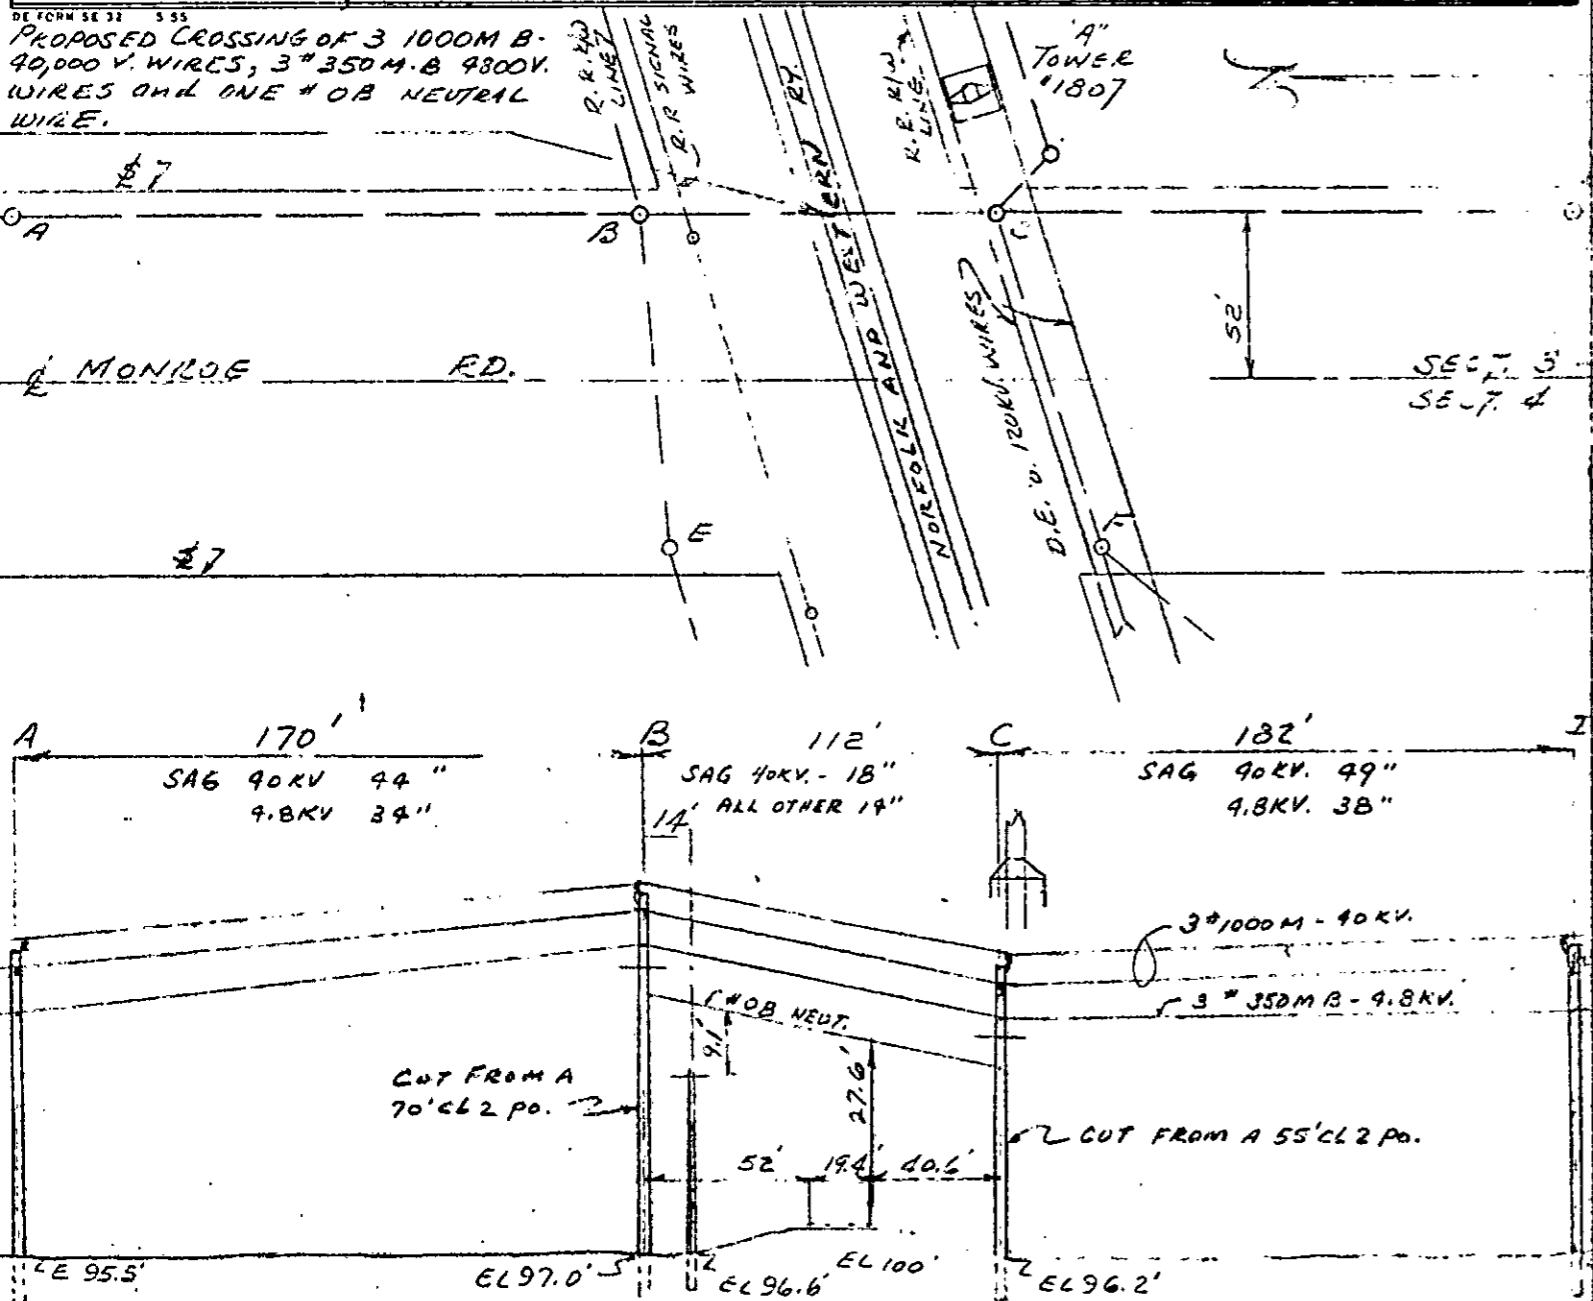 DE FORM SE 32 5 55
PROPOSED CROSSING OF 3 1000M B-
40,000 V. WIRES, 3 # 350 M.B 4800V.
WIRES and ONE # OB NEUTRAL
WIRE.
R.R. R/W
LINE
R.R SIGNAL
WIRES
R.R. R/W
LINE
"A"
TOWER
#1807
A
B
C
NORFOLK AND WESTERN RY.
D.E. Co. 120KV. WIRES
52'
℄ MONROE RD.
SECT. 3
SECT. 4
E
A
170'
B
112'
C
182'
SAG 40KV 44"
4.8KV 34"
SAG 40KV. - 18"
ALL OTHER 14"
SAG 40KV. 49"
4.8KV. 38"
14'
3 #1000 M - 40 KV.
3 # 350M B - 4.8KV.
1 #OB NEUT.
9.1'
27.6'
CUT FROM A
70' CL 2 PO.
CUT FROM A 55' CL 2 PO.
52'
19.4'
40.6'
E 95.5'
EL 97.0'
EL 96.6'
EL 100'
EL 96.2'